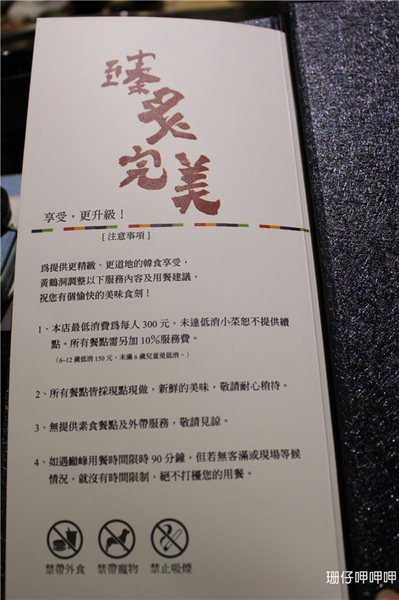 臻炙完美
享受，更升級！
[ 注意事項 ]
爲提供更精緻、更道地的韓食享受，
黃鶴洞調整以下服務內容及用餐建議，
祝您有個愉快的美味食刻！
1、本店最低消費爲每人 300 元，未達低消小菜恕不提供續
點。所有餐點需另加 10% 服務費。
（6~12 歲低消 150 元，未滿 6 歲兒童免低消。）
2、所有餐點皆採現點現做，新鮮的美味，敬請耐心稍待。
3、無提供素食餐點及外帶服務，敬請見諒。
4、如遇巔峰用餐時間限時 90 分鐘，但若無客滿或現場等候
情況，就沒有時間限制，絕不打擾您的用餐。
禁帶外食 禁帶寵物 禁止吸煙
珊仔呷呷呷